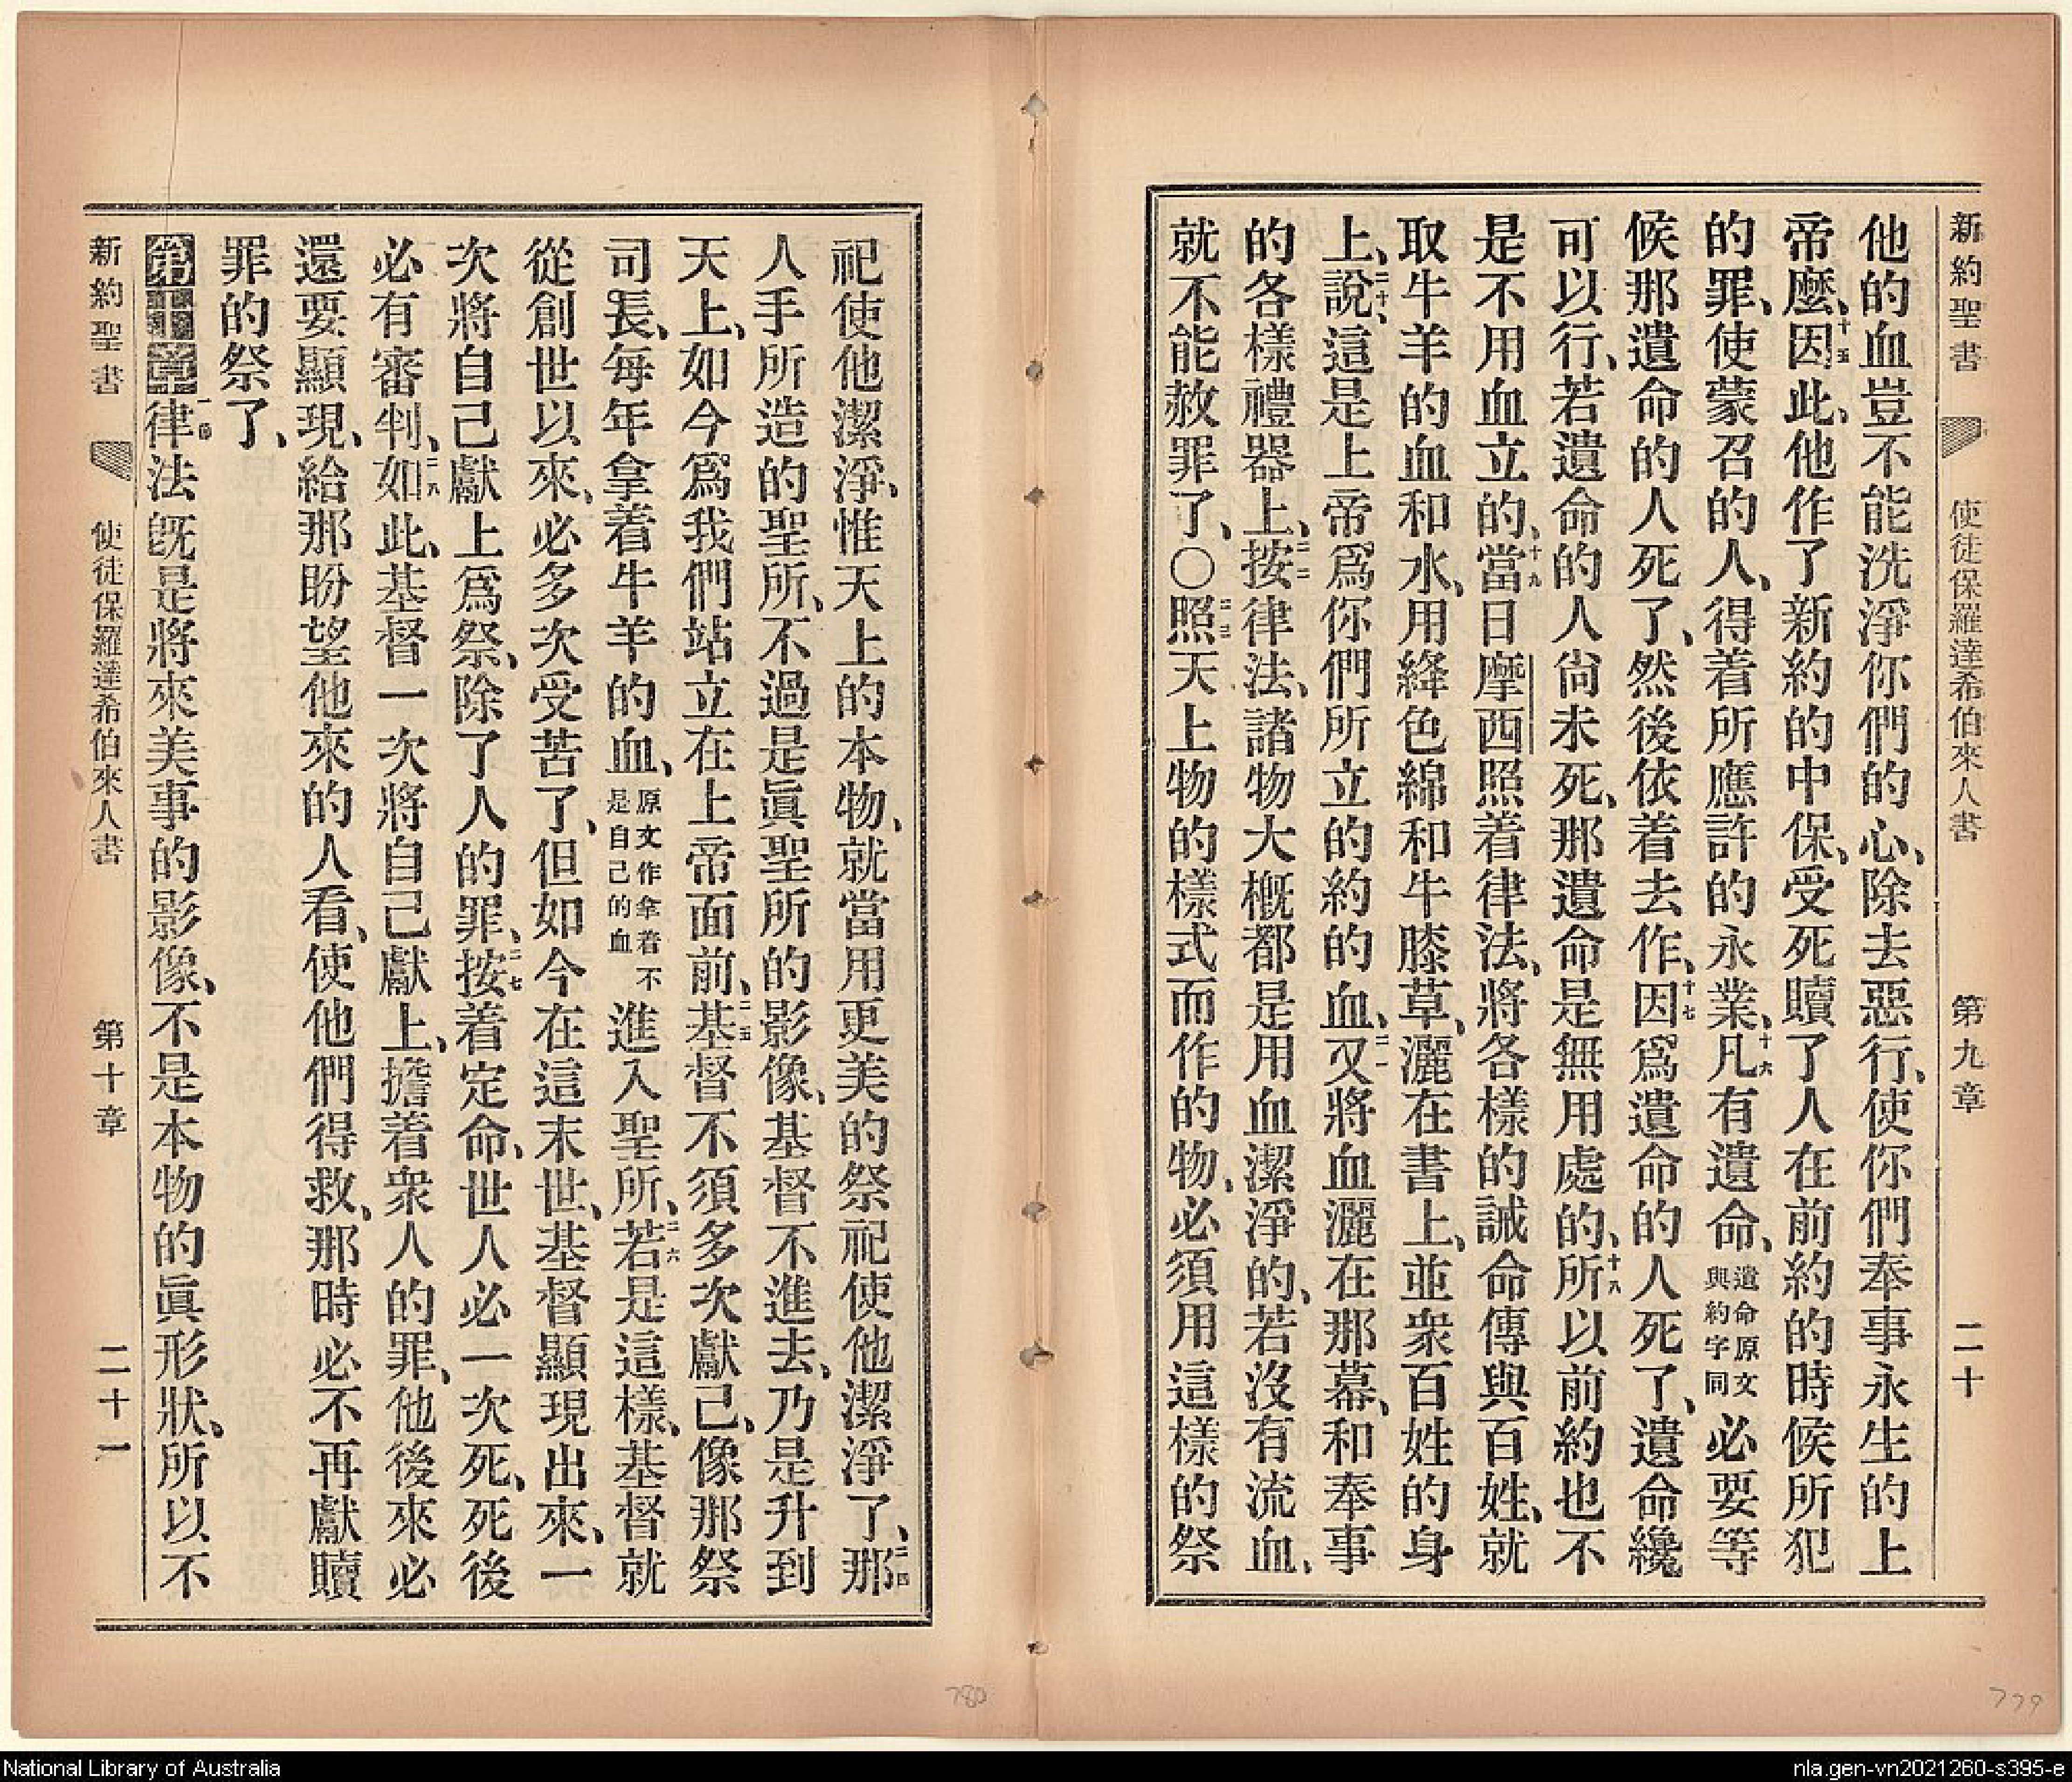 新約聖書 使徒保羅達希伯來人書 第九章 二十
他的血豈不能洗淨你們的心、除去惡行、使你們奉事永生的上
帝麼、十五因此、他作了新約的中保、受死贖了人在前約的時候所犯
的罪、使蒙召的人、得着所應許的永業、十六凡有遺命、遺命原文與約字同必要等
候那遺命的人死了、然後依着去作、十七因爲遺命的人死了、遺命纔
可以行、若遺命的人尙未死、那遺命是無用處的、十八所以前約也不
是不用血立的、十九當日摩西照着律法、將各樣的誡命傳與百姓、就
取牛羊的血和水、用絳色綿和牛膝草、灑在書上、並衆百姓的身
上、二十說、這是上帝爲你們所立的約的血、二一又將血灑在那幕、和奉事
的各樣禮器上、二二按律法、諸物大槪都是用血潔淨的、若沒有流血、
就不能赦罪了、〇二三照天上物的樣式而作的物、必須用這樣的祭
祀使他潔淨、惟天上的本物、就當用更美的祭祀使他潔淨了、二四那
人手所造的聖所、不過是眞聖所的影像、基督不進去、乃是升到
天上、如今爲我們站立在上帝面前、二五基督不須多次獻己、像那祭
司長、每年拿着牛羊的血、原文作拿着不是自己的血進入聖所、二六若是這樣、基督就
從創世以來、必多次受苦了、但如今在這末世、基督顯現出來、一
次將自己獻上爲祭、除了人的罪、二七按着定命、世人必一次死、死後
必有審判、二八如此、基督一次將自己獻上、擔着衆人的罪、他後來必
還要顯現、給那盼望他來的人看、使他們得救、那時必不再獻贖
罪的祭了、
第十章一節律法旣是將來美事的影像、不是本物的眞形狀、所以不
新約聖書 使徒保羅達希伯來人書 第十章 二十一
780
779
National Library of Australia
nla.gen-vn2021260-s395-e